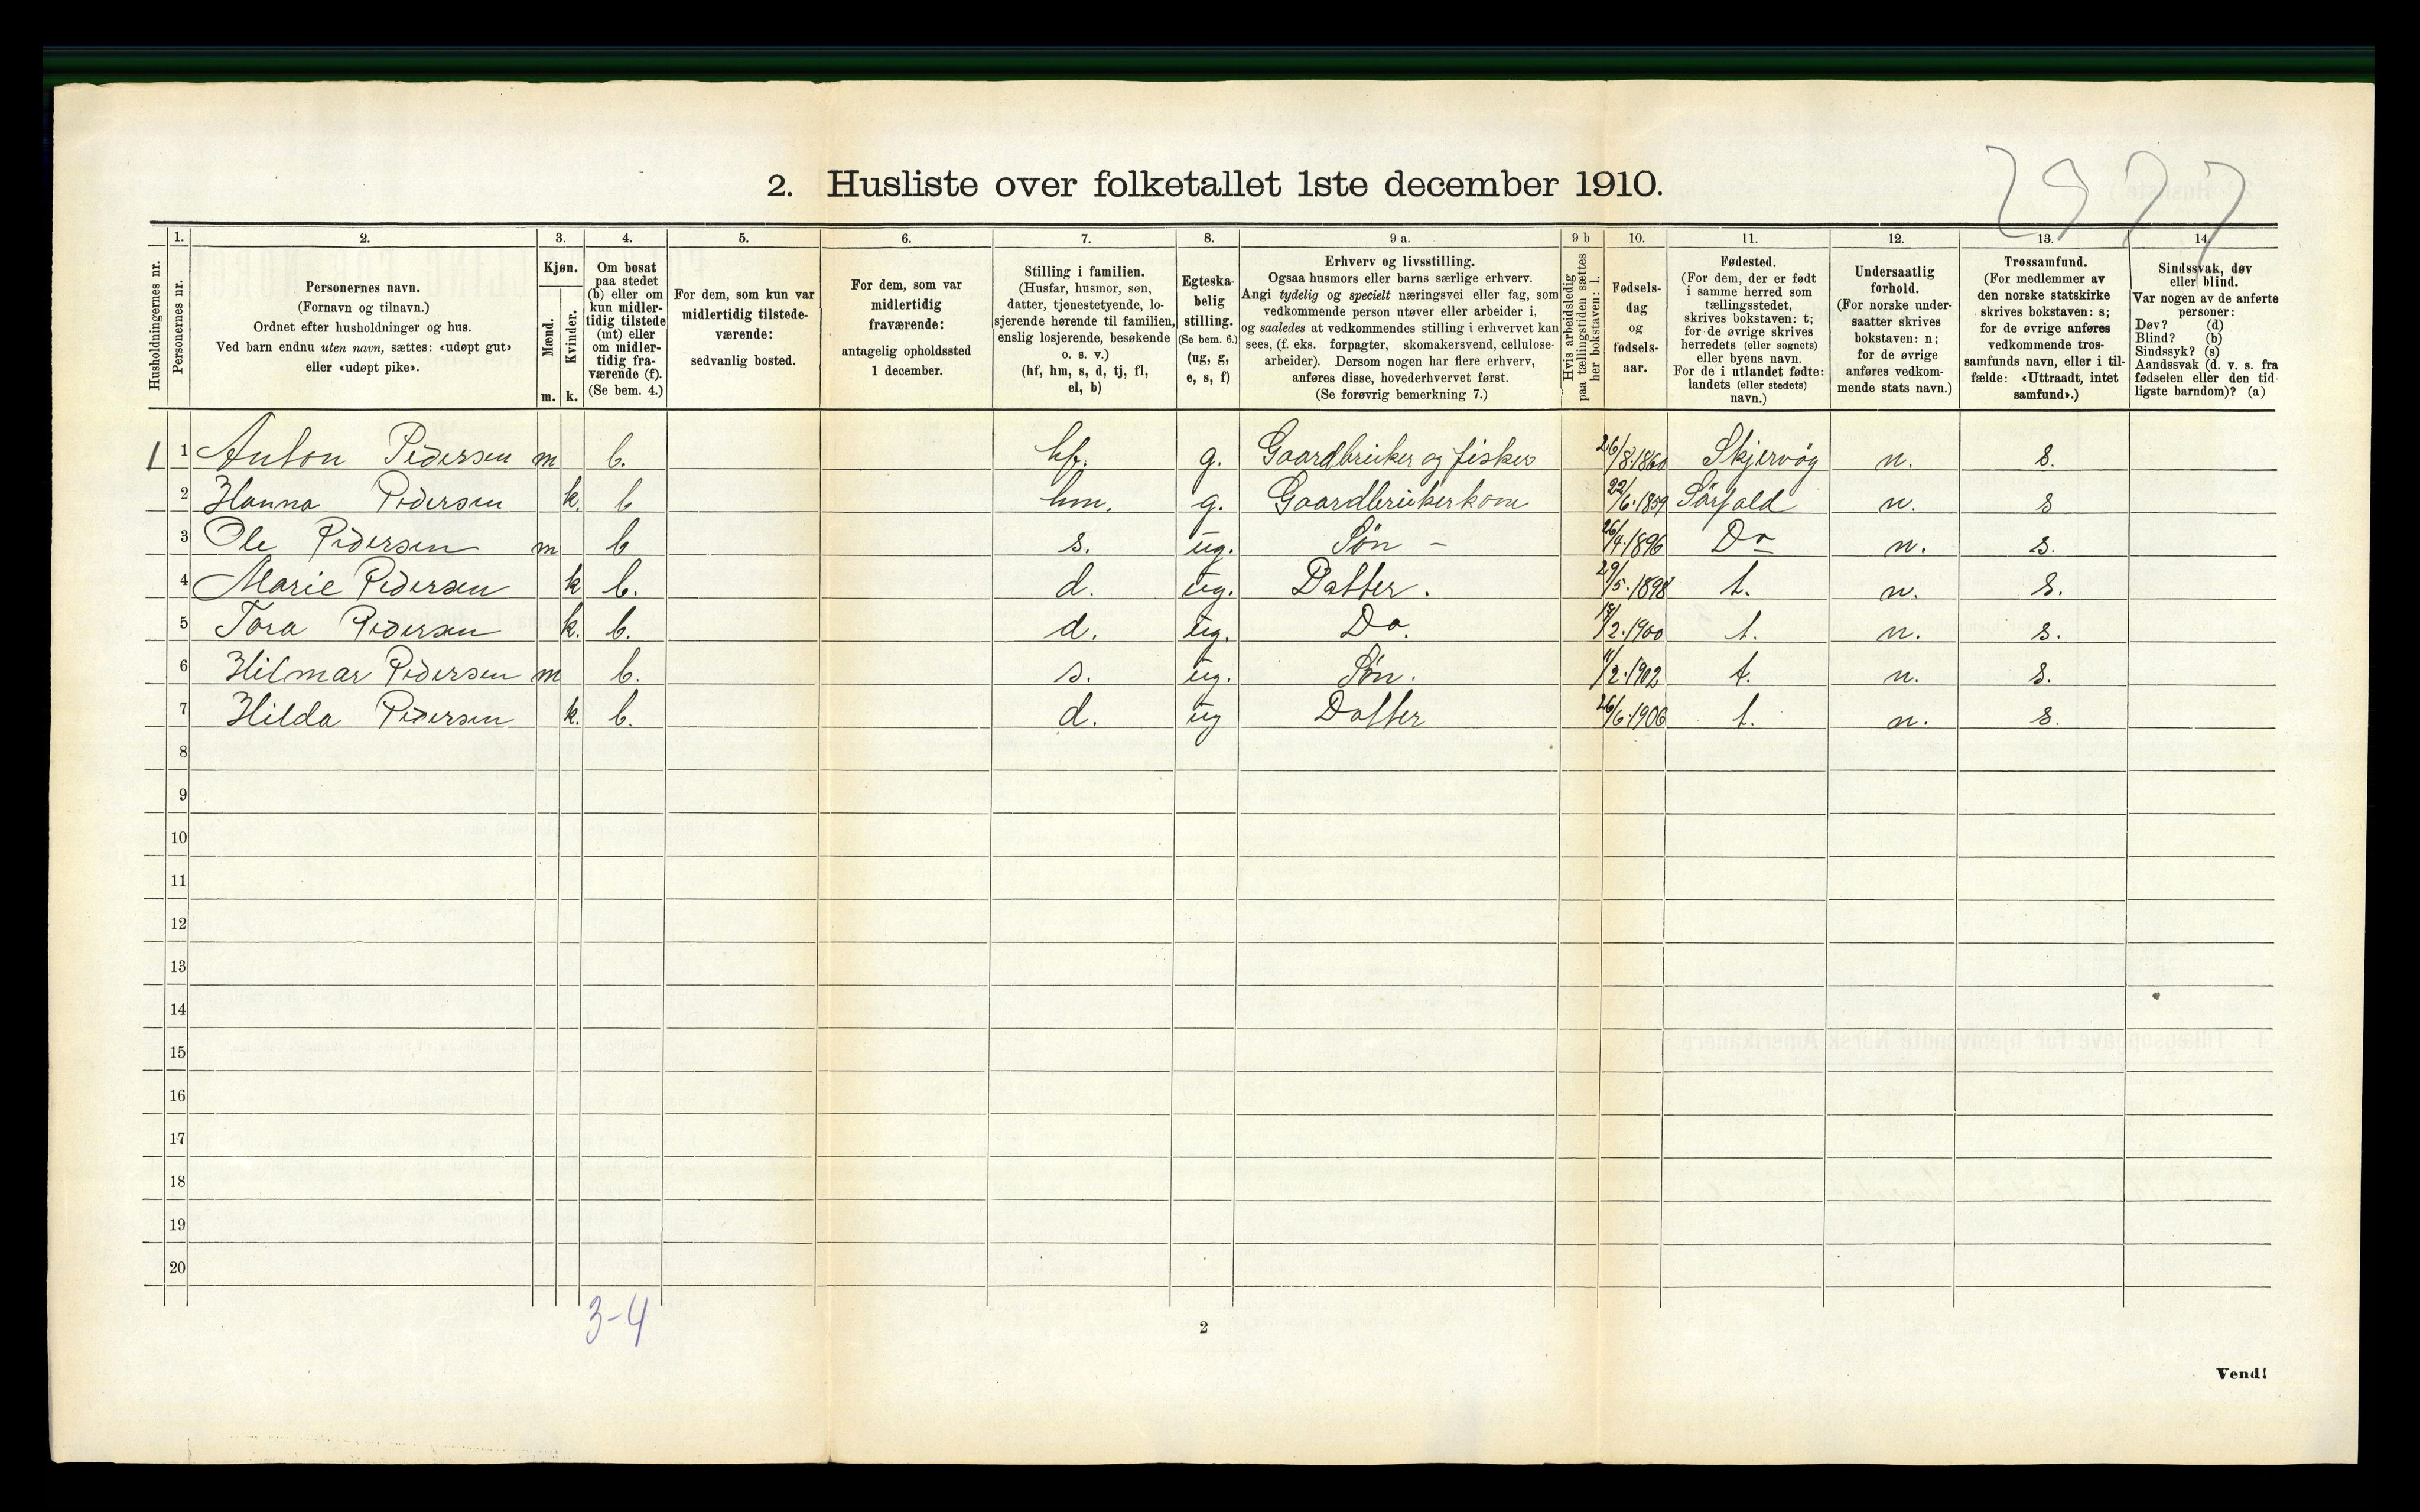 2977
2. Husliste over folketallet 1ste december 1910.
Husholdningernes nr.
1.
Personernes nr.
2.
Personernes navn.
(Fornavn og tilnavn.)
Ordnet efter husholdninger og hus.
Ved barn endnu uten navn, sættes: «udøpt gut»
eller «udøpt pike».
3.
Kjøn.
Mænd.
Kvinder.
m. k.
4.
Om bosat
paa stedet
(b) eller om
kun midler-
tidig tilstede
(mt) eller
om midler-
tidig fra-
værende (f).
(Se bem. 4.)
5.
For dem, som kun var
midlertidig tilstede-
værende:
sedvanlig bosted.
6.
For dem, som var
midlertidig
fraværende:
antagelig opholdssted
1 december.
7.
Stilling i familien.
(Husfar, husmor, søn,
datter, tjenestetyende, lo-
sjerende hørende til familien,
enslig losjerende, besøkende
o. s. v.)
(hf, hm, s, d, tj, fl,
el, b)
8.
Egteska-
belig
stilling.
(Se bem. 6.)
(ug, g,
e, s, f)
9 a.
Erhverv og livsstilling.
Ogsaa husmors eller barns særlige erhverv.
Angi tydelig og specielt næringsvei eller fag, som
vedkommende person utøver eller arbeider i,
og saaledes at vedkommendes stilling i erhvervet kan
sees, (f. eks. forpagter, skomakersvend, cellulose-
arbeider). Dersom nogen har flere erhverv,
anføres disse, hovederhvervet først.
(Se forøvrig bemerkning 7.)
9 b
Hvis arbeidsledig
paa tællingstiden sættes
her bokstaven: l.
10.
Fødsels-
dag
og
fødsels-
aar.
11.
Fødested.
(For dem, der er født
i samme herred som
tællingsstedet,
skrives bokstaven: t;
for de øvrige skrives
herredets (eller sognets)
eller byens navn.
For de i utlandet fødte:
landets (eller stedets)
navn.)
12.
Undersaatlig
forhold.
(For norske under-
saatter skrives
bokstaven: n;
for de øvrige
anføres vedkom-
mende stats navn.)
13.
Trossamfund.
(For medlemmer av
den norske statskirke
skrives bokstaven: s;
for de øvrige anføres
vedkommende tros-
samfunds navn, eller i til-
fælde: «Uttraadt, intet
samfund».)
14.
Sindssvak, døv
eller blind.
Var nogen av de anførte
personer:
Døv? (d)
Blind? (b)
Sindssyk? (s)
Aandssvak (d. v. s. fra
fødselen eller den tid-
ligste barndom)? (a)
1 1 Anton Pedersen m b. hf. g. Gaardbruker og fisker 26/8.1860 Skjervøy n. s.
2 Hanna Pedersen k. b hm. g. Gaardbrukerkone 22/6.1859 Sørfold n. s
3 Ole Pedersen m b s. ug. Søn - 26/4.1896 Do n. s.
4 Marie Pedersen k b. d. ug. Datter. 29/5.1898 t. n. s.
5 Tora Pedersen k. b. d. ug. Do. 18/2.1900 t. n. s.
6 Hilmar Pedersen m b. s. ug. Søn. 11/2.1902 t. n. s.
7 Hilda Pedersen k. b. d. ug Datter 26/6.1906 t. n. s.
8
9
10
11
12
13
14
15
16
17
18
19
20
3-4
2
Vend!